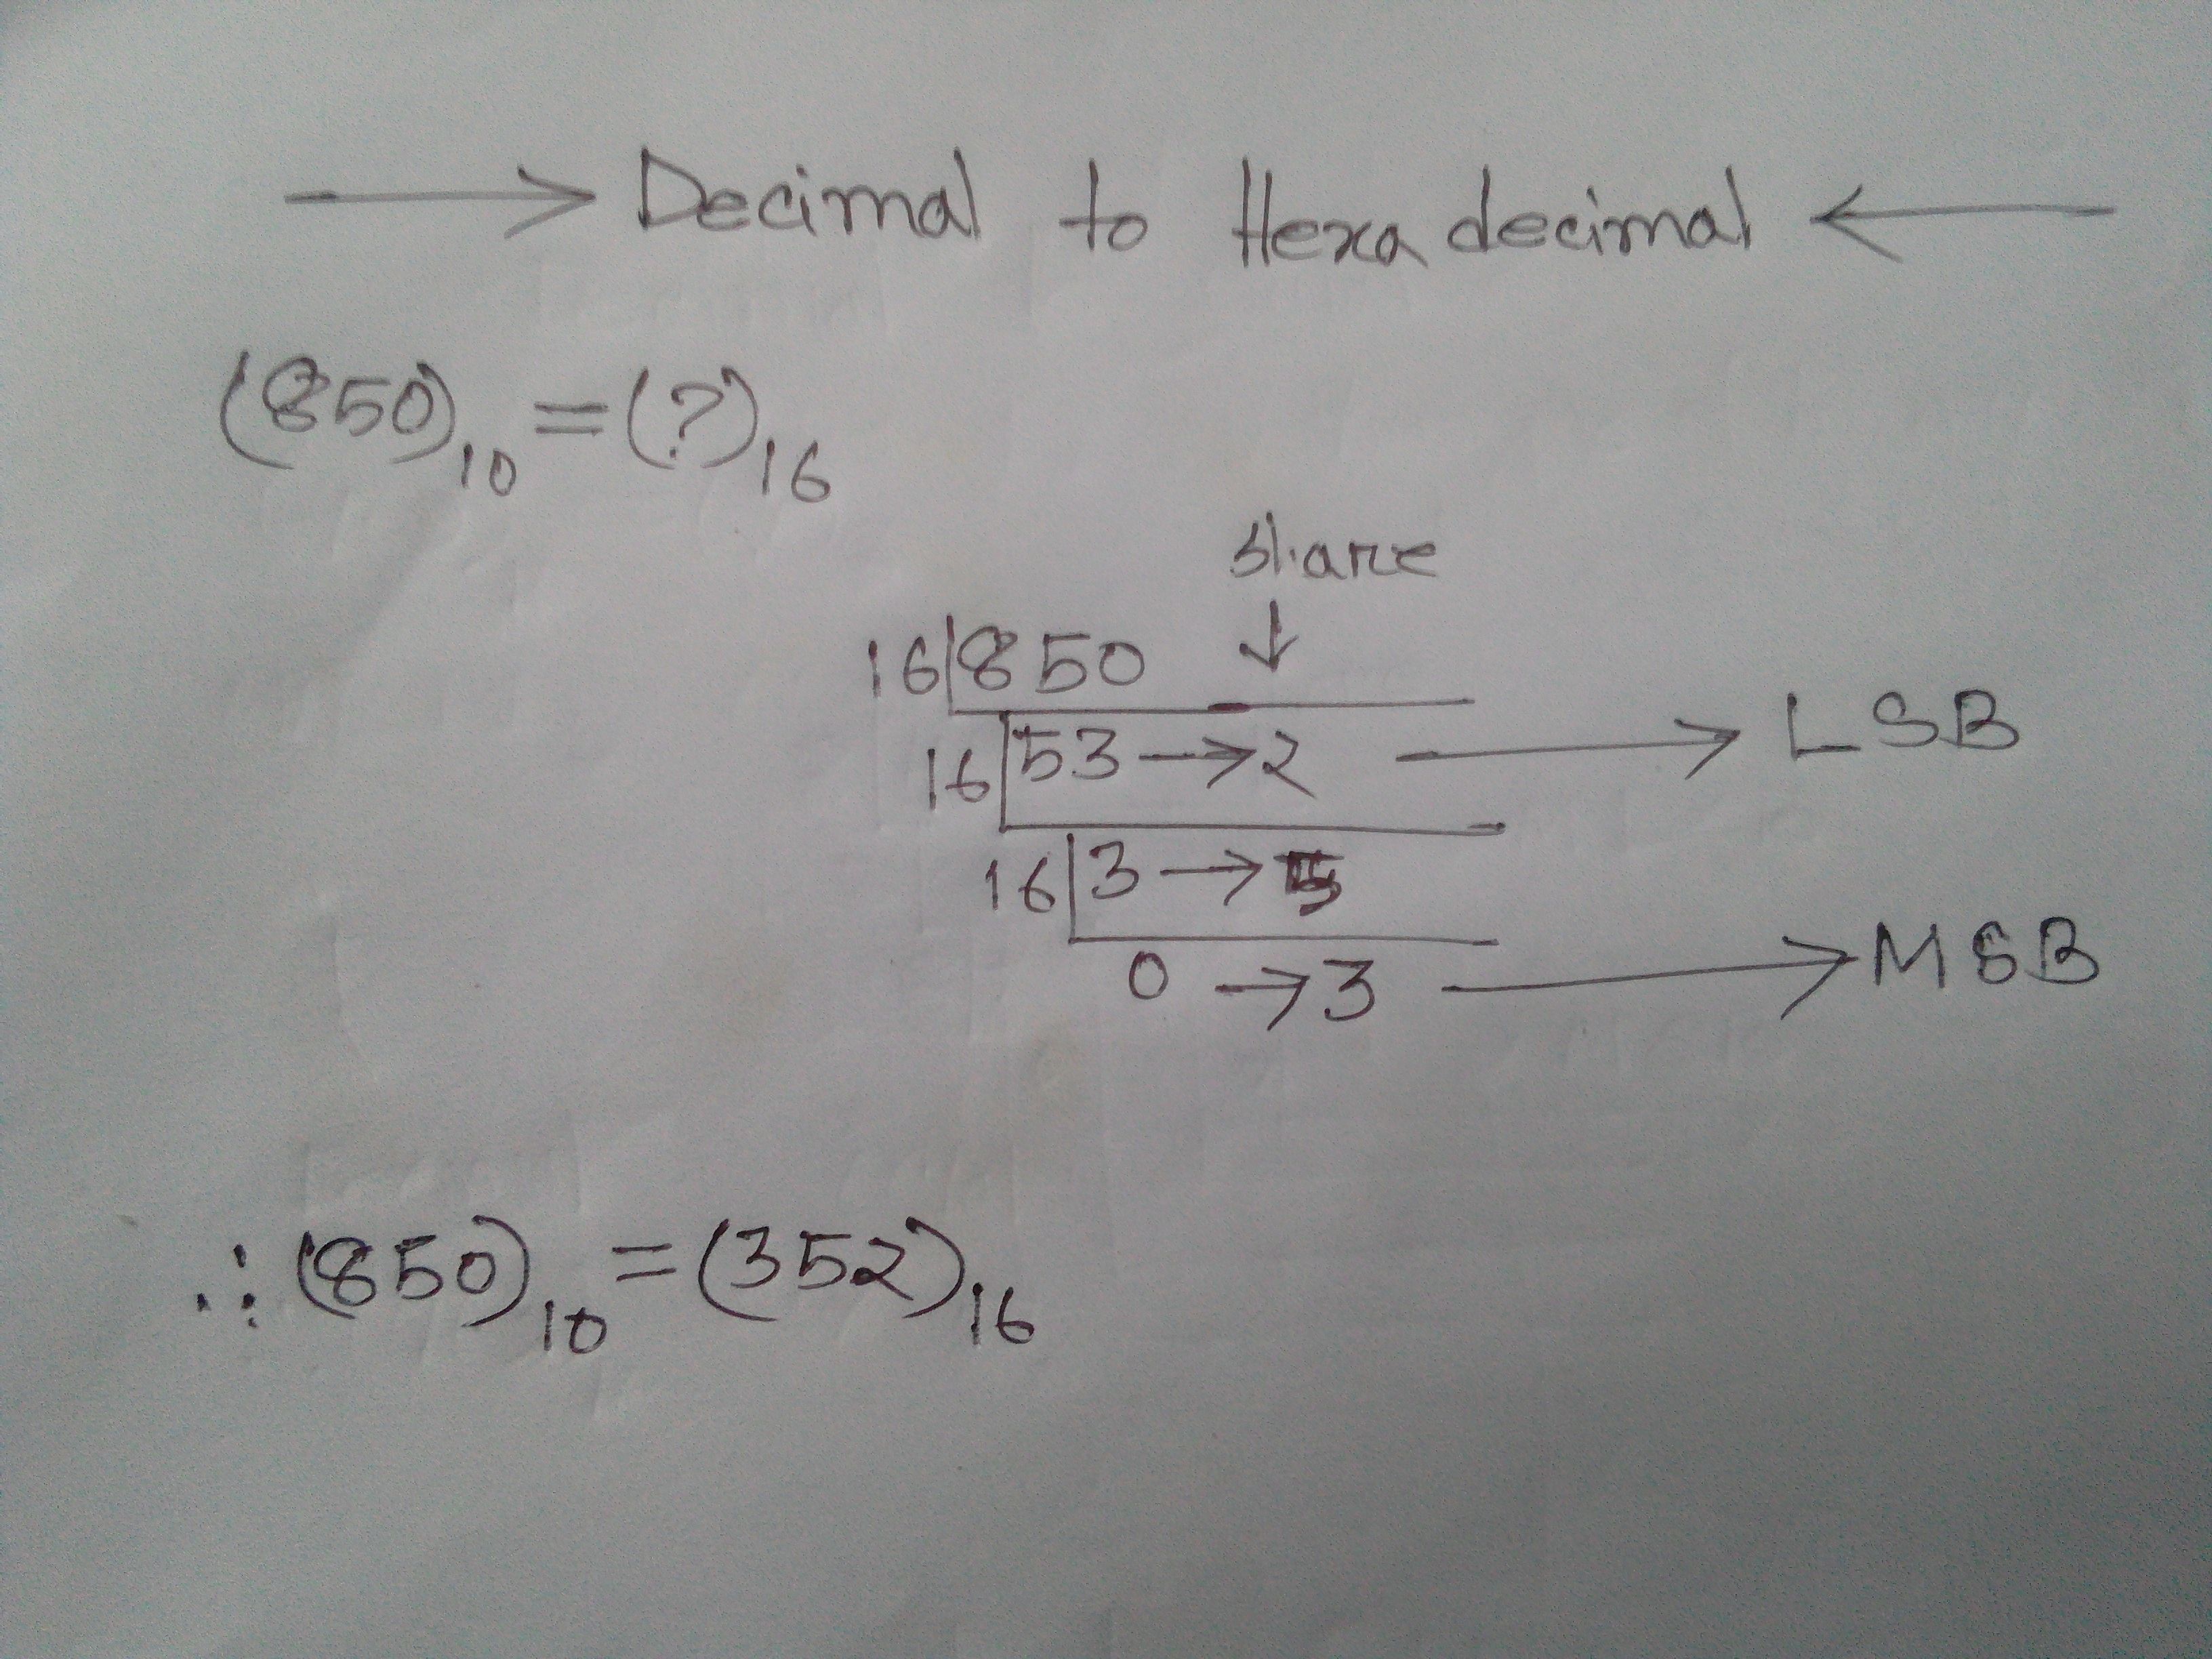 → Decimal to Hexadecimal ←
(850)₁₀ = (?)₁₆
share
↓
16|850
16|53 → 2 → LSB
16|3 → 5
0 → 3 → MSB
∴ (850)₁₀ = (352)₁₆